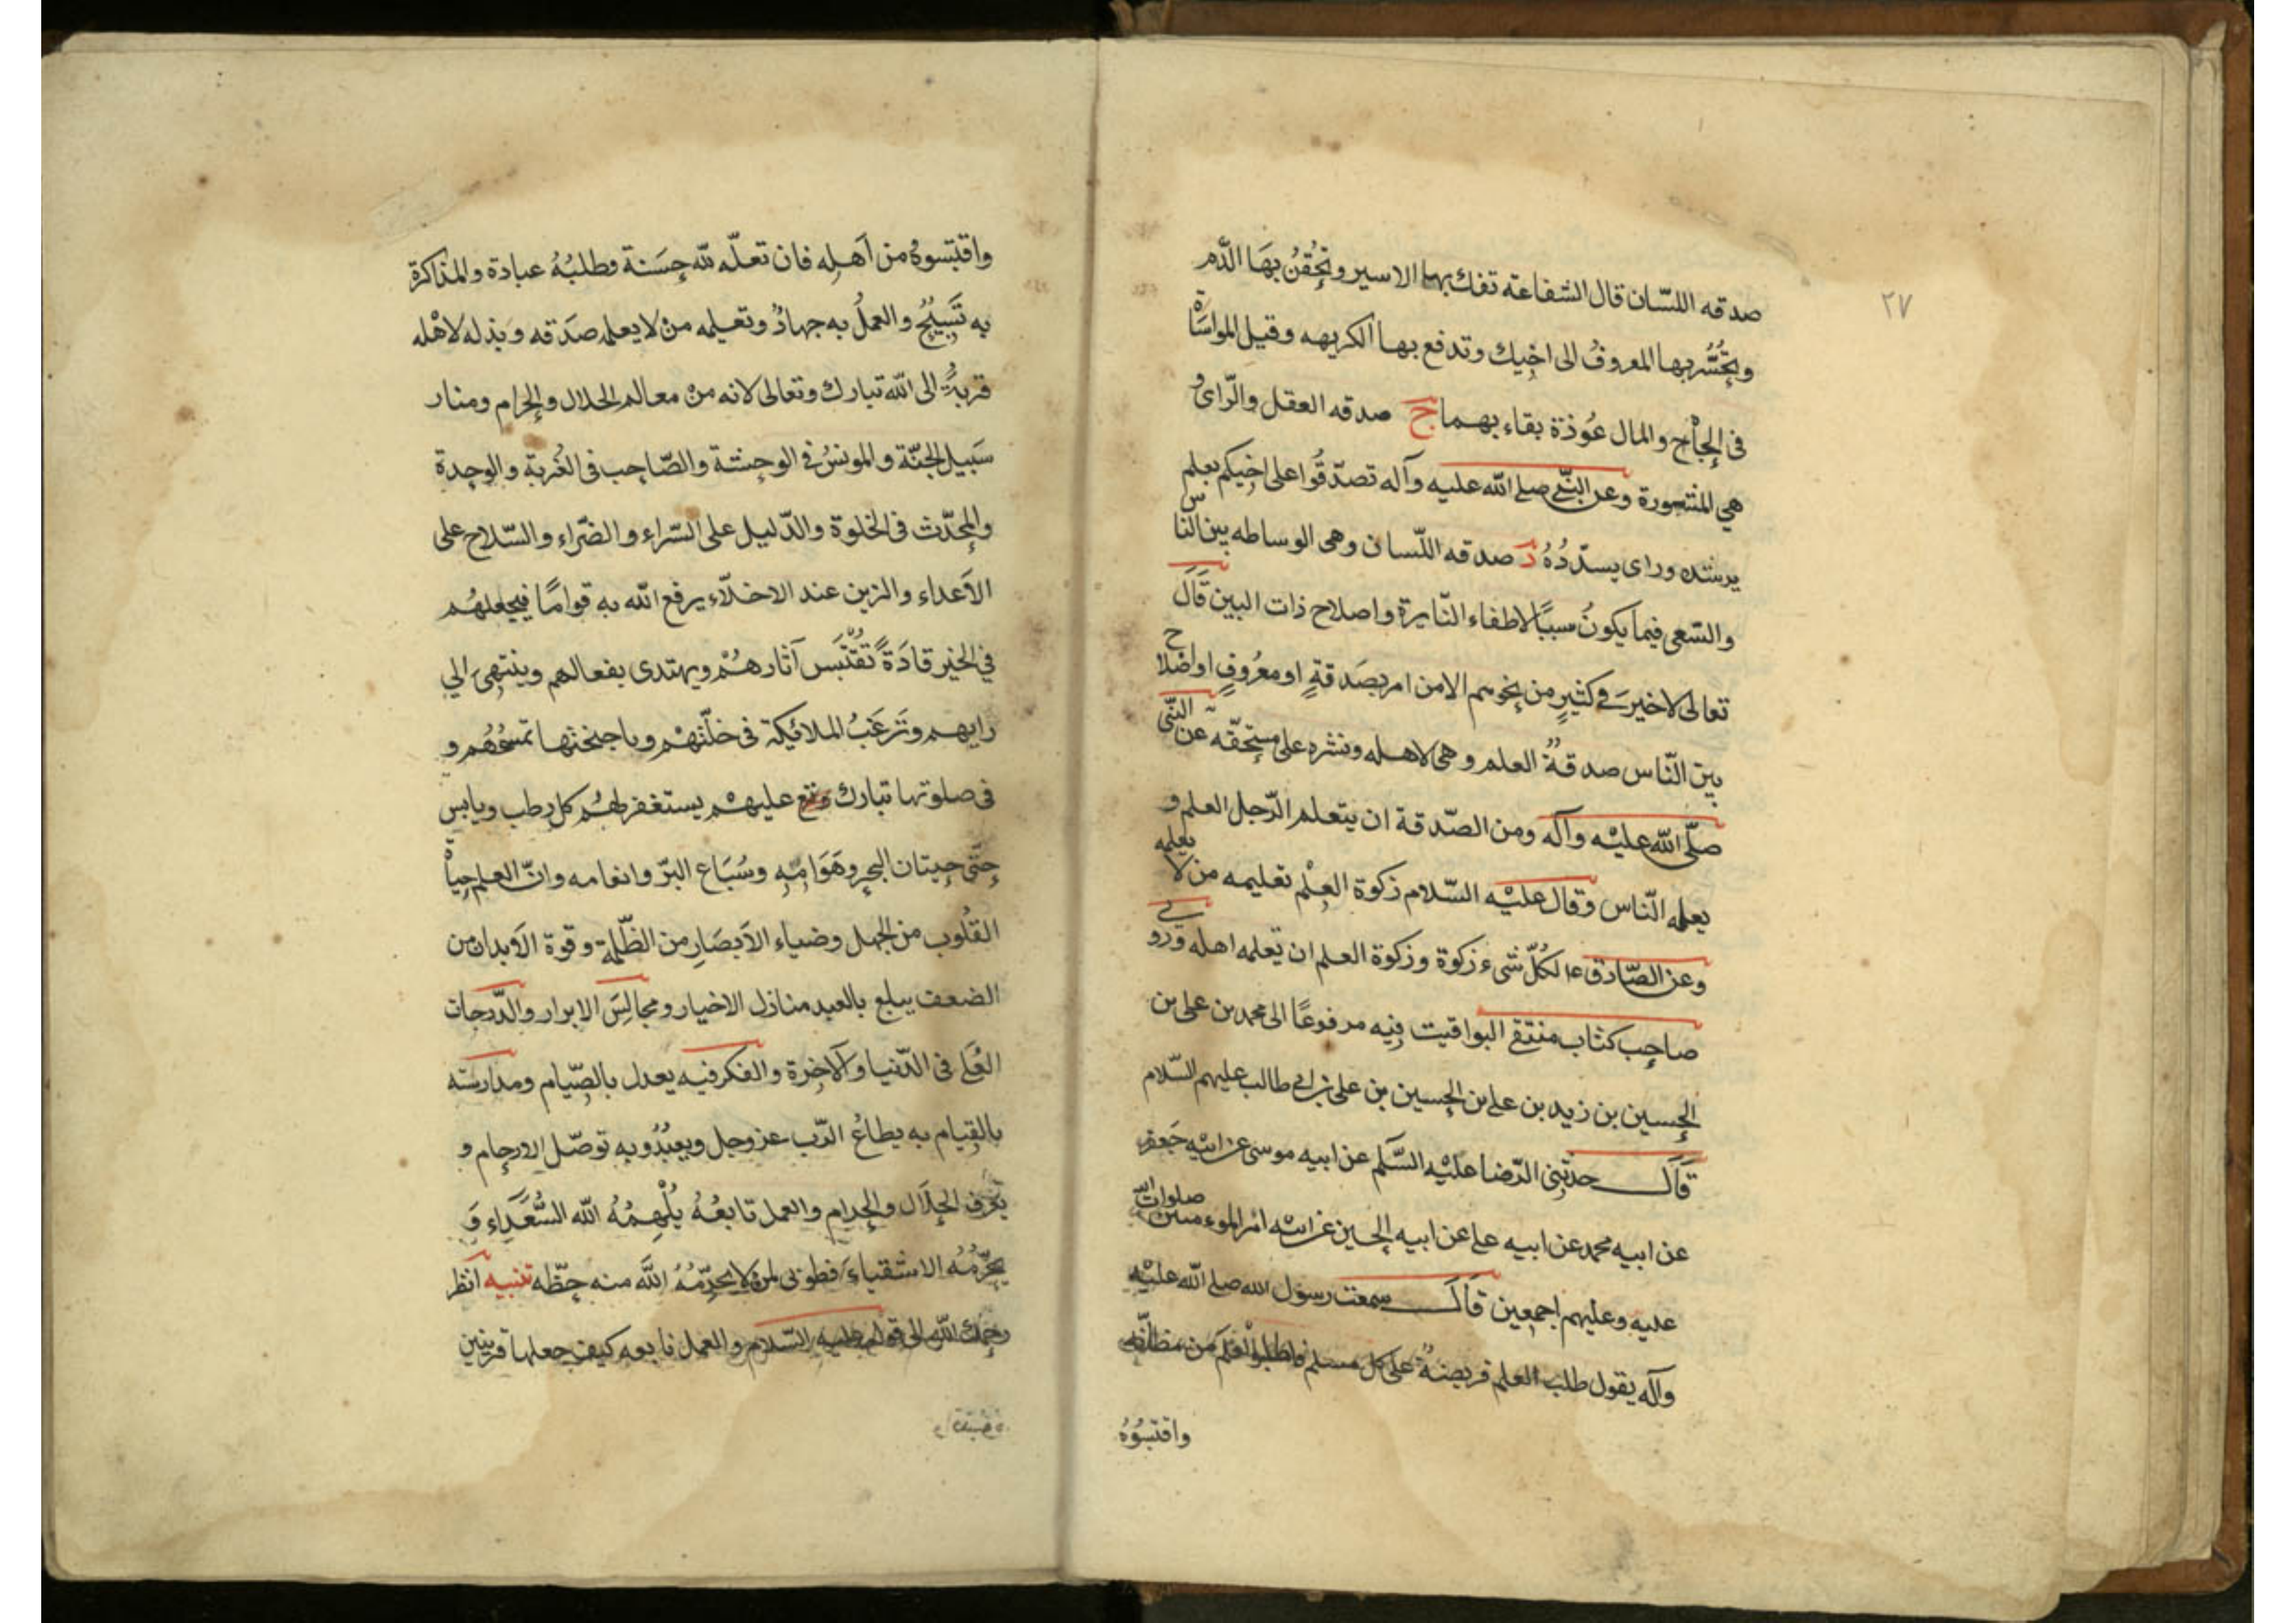 ٢٧
صدقه اللسّان قال الشفاعة تفك بها الاسير وتحُقنُ بهَا الدّم
وتجُسُّر بها المعروفُ الى اخِيك وتدفع بها الكريهه وقيل المواسَاة
فى الجاْح والمال عُوذة بقاء بهما ج صدقه العقل والرّاى و
هي المشورة وعن النبّي صلے الله عليه وآله تصدّقُوا على اخِيكم بعلم
يرشده وراى يسدّدُهُ د صدقه اللّسان وهى الوساطه بين النّاس
والسّعى فيما يكونُ سببًا لاطفاء النّايرة واصلاح ذات البين قَالَ
تعالى لاخيرَ في كثيرٍ من نجويهم الا من امر بصَدقةٍ او معرُوفٍ او اصلاح
بين النّاس ه صدقةُ العلم وهى لاهله ونشره على مستحقّه عن النّبى
صلّى الله عليْه وآله ومن الصّدقة ان يتعلم الرّجل العلم و
يعلمه النّاس وقال عليْه السّلام زكوة العِلْم تعليمه من لا يعلمه
وعن الصّادق ع لكُلّ شیء زكوة وزكوة العلم ان تعلمه اهله وروى
صاحِب كتاب منتقى اليواقيت فِيه مرفوعًا الى محمد بن على بن
الحسين بن زيد بن علے بن الحسين بن على بن ابى طالب عليهم السّلام
قَالَ حدثنى الرّضا عليْه السَّلم عن ابيه موسى عن ابيْه جَعفر
عن ابيه محمد عن ابيه على عن ابيه الحسين عن ابيْه امير الموءمنين صلوات الله
عليه وعليهم اجمعين قَالَ سمعت رسوُل الله صلے الله عليْه
وآله يقول طلب العلم فريضةٌ على كل مسلم فاطلبوا العلم من مظانّه
واقتبسُوُهُ
واقتبَسوهُ من اَهلِه فان تعلّمه لله حِسَنة وطلبُهُ عبادة والمذاكرة
به تَسبِيُحٌ والعملُ به جهادُ وتعليمه منْ لا يعلمه صَدقه وبذله لاهْله
قربةُ الى الله تبارك وتعالى لانه منْ معالم الحلال والحرام ومنار
سَبيل الجنّة والمونسُ فى الوحشة والصّاحِب فى الغُربة والوحِدة
والمحدّث فى الخلوة والدّليل على السّراء والضّراء والسّلاح على
الاَعداء والزين عند الاخلّاء يرفع الله به قوامًا فيجعلهُم
فى الخير قادَةً تُقتَبس آثارهُمْ ويهتدى بفعالهم وينتهىَ الي
رايهم وتَرغَبُ الملائيكة فى خلّتهْم وباجنحتها تمسحُهُم و
فى صلوتها تبارك وتع عليهْم يستغفر لهُم كل رطب ويابس
حِتّى حِيتان البحر وهَوَامِّهِ وسُبَاع البرّ وانعامه وانّ العلم حِياة
القلُوب من الجهل وضياء الاَبصَارِ من الظّلمة وقوة الاَبدان من
الضعف يبلع بالعبد منازل الاخيار ومجالِسَ الابرار والدّرجات
العُلے فى الدّنيا والآخِرة والفكر فيه يعدل بالصِّيام ومدارسَته
بالقِيام به يطاعُ الرّب عز وجل ويعبُدُ وبه توصّل الارحام و
يعرف الحِلاَل والحِرام والعمل تابعُهُ يُلْهِمُهُ الله السُّعَدَاء وَ
يحرّمُهُ الاشقياءَ فطوبى لمن لا يحرّمُهُ اللَّه منه حِظّه تنبيه انظر
رحمك اللّه الى قوله عليه السّلام والعمل تابعه كيف جعلها قرينين